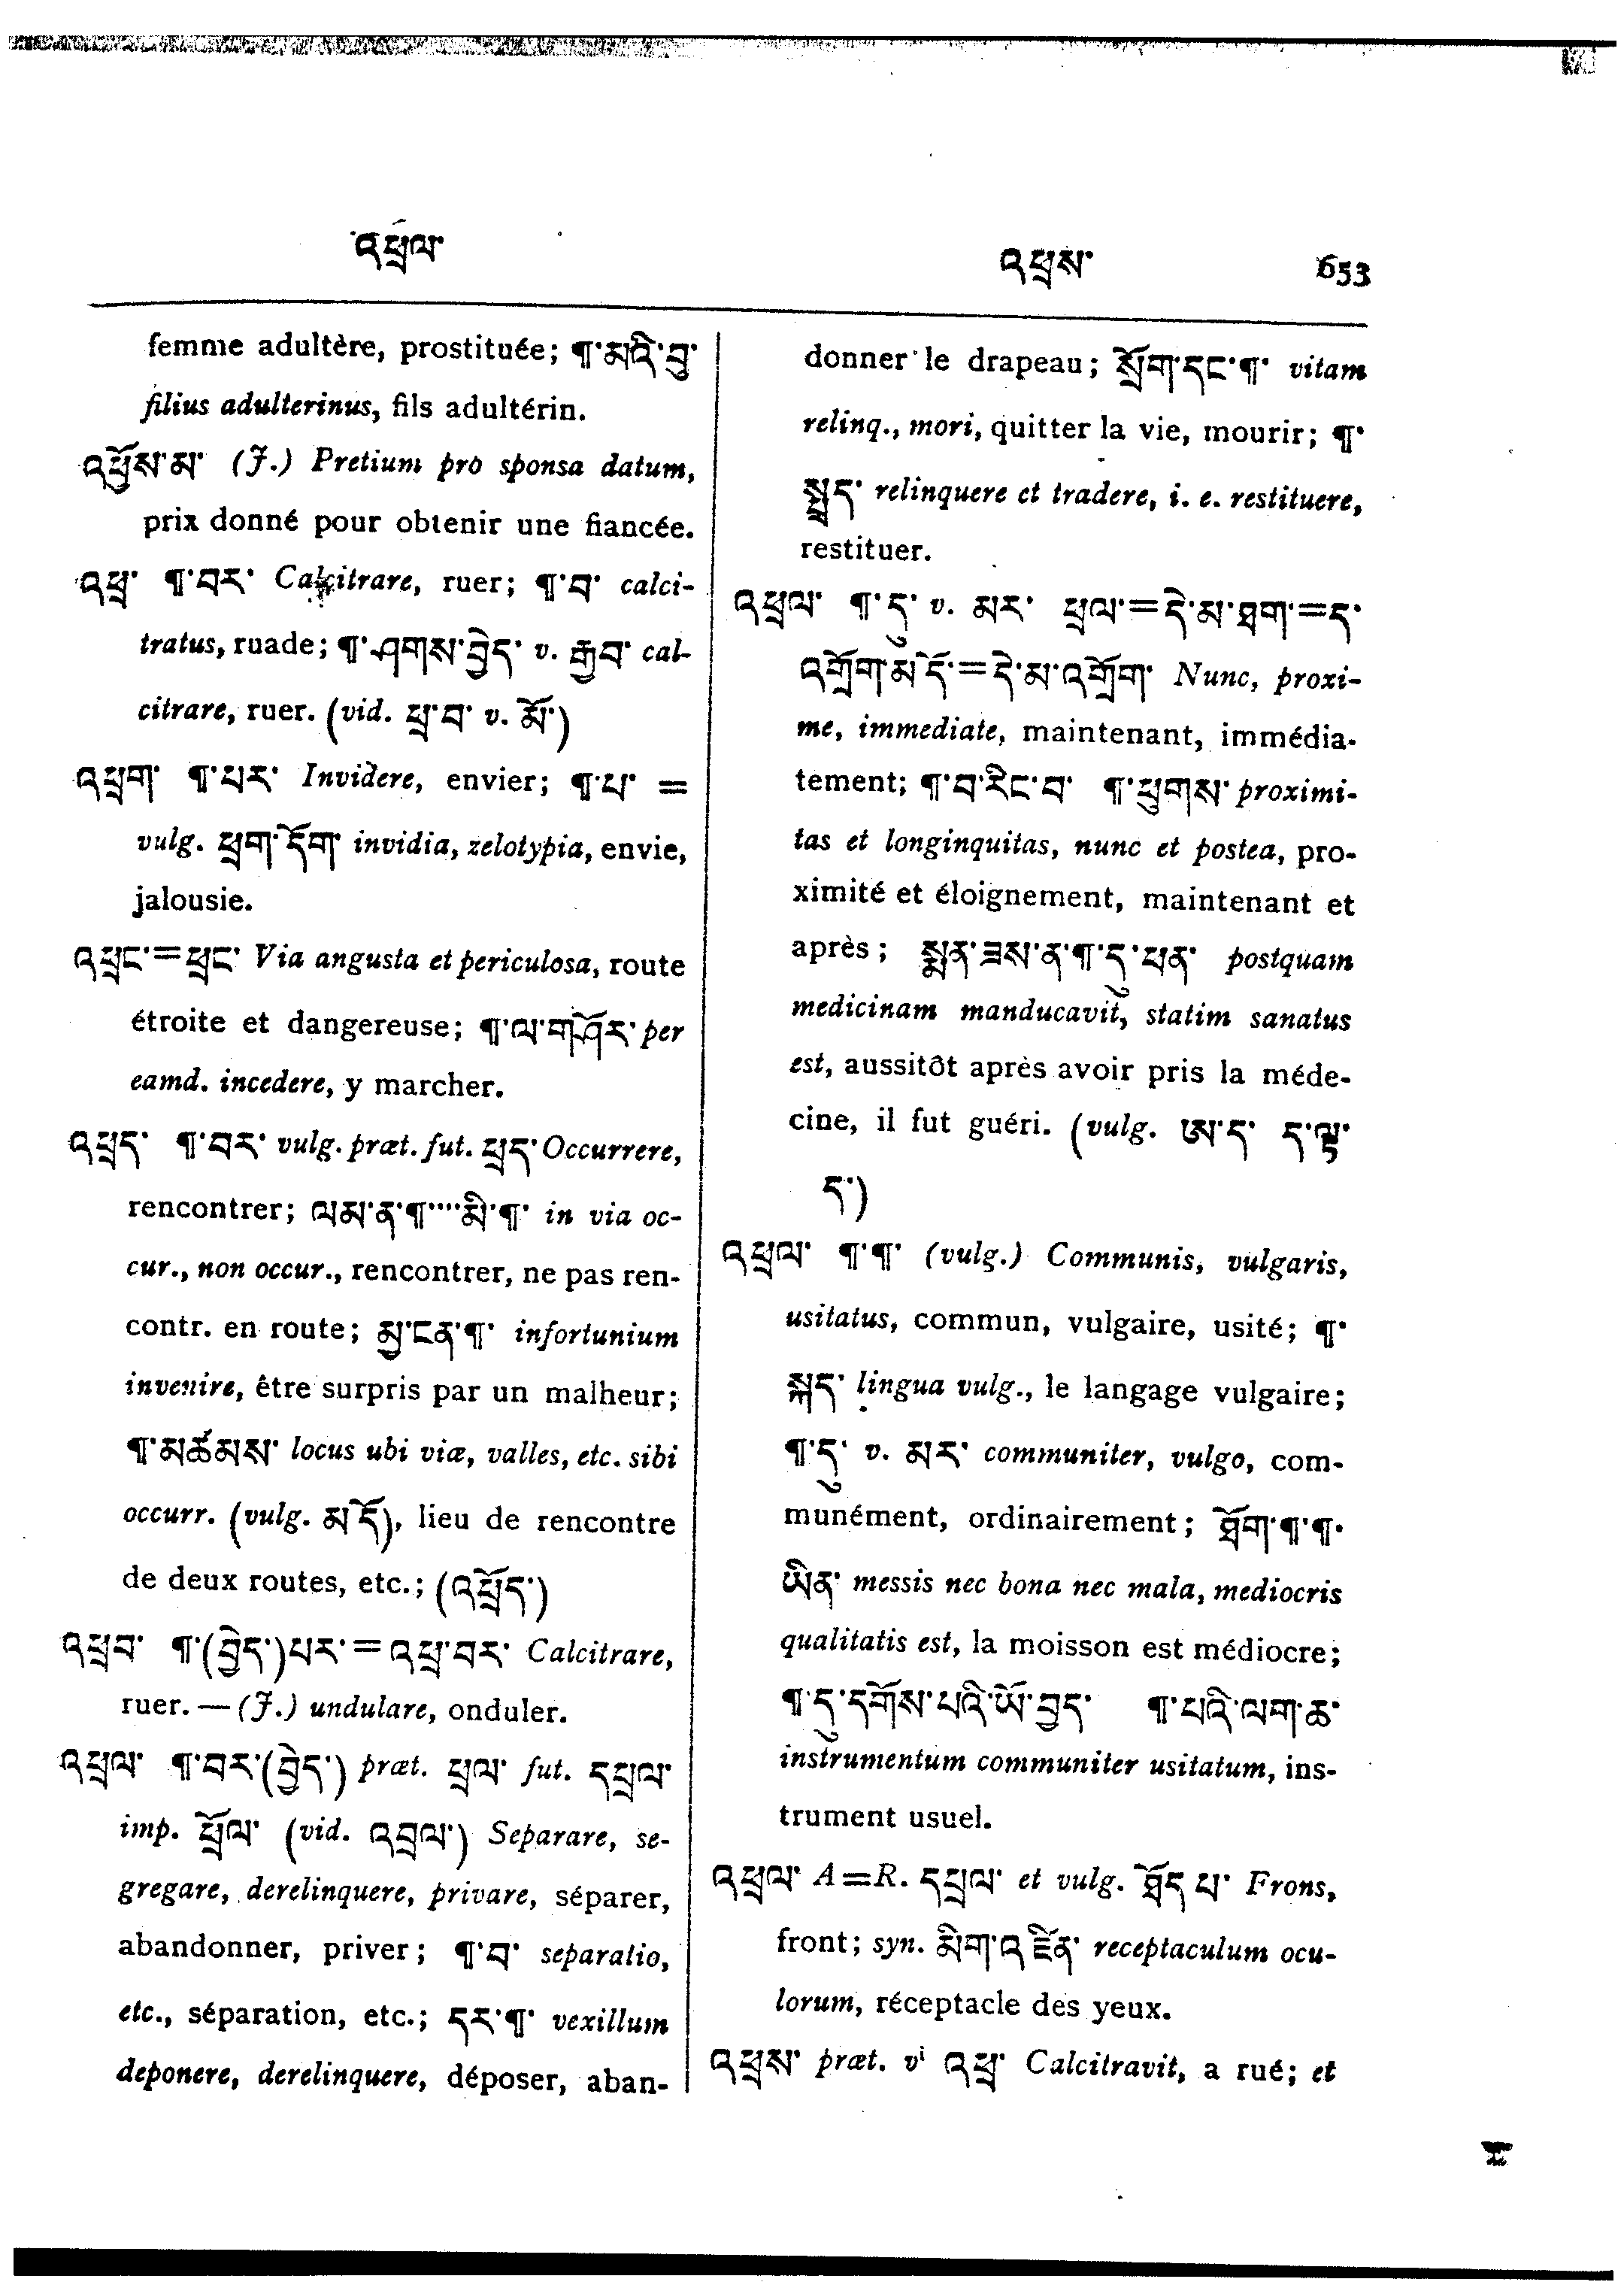 འཕྲལ་
འཕྲས་ 653
femme adultère, prostituée; ¶་མའི་བུ་
filius adulterinus, fils adultérin.
འཕྱོས་མ་ (J.) Pretium pro sponsa datum,
prix donné pour obtenir une fiancée.
འཕྲ་ ¶་བར་ Calcitrare, ruer; ¶་བ་ calci-
tratus, ruade; ¶་ཤགས་བྱེད་ v. རྒྱབ་ cal-
citrare, ruer. (vid. ཕྲ་བ་ v. མོ་)
འཕྲག་ ¶་པར་ Invidere, envier; ¶་པ་ =
vulg. ཕྲག་དོག་ invidia, zelotypia, envie,
jalousie.
འཕྲང་=ཕྲང་ Via angusta et periculosa, route
étroite et dangereuse; ¶་ལ་གཤོར་ per
eamd. incedere, y marcher.
འཕྲད་ ¶་བར་ vulg. præt. fut. ཕྲད་ Occurrere,
rencontrer; ལམ་ན་¶་་་་མི་¶་ in via oc-
cur., non occur., rencontrer, ne pas ren-
contr. en route; མྱ་ངན་¶་ infortunium
invenire, être surpris par un malheur;
¶་མཚམས་ locus ubi viæ, valles, etc. sibi
occurr. (vulg. མདོ), lieu de rencontre
de deux routes, etc.; (འཕྲོད་)
འཕྲབ་ ¶་(བྱེད་)པར་ = འཕྲ་བར་ Calcitrare,
ruer. — (J.) undulare, onduler.
འཕྲལ་ ¶་བར་(བྱེད་) præt. ཕྲལ་ fut. དཕྲལ་
imp. ཕྲོལ་ (vid. འབྲལ་) Separare, se-
gregare, derelinquere, privare, séparer,
abandonner, priver; ¶་བ་ separatio,
etc., séparation, etc.; དར་¶་ vexillum
deponere, derelinquere, déposer, aban-
donner le drapeau; སྲོག་དང་¶་ vitam
relinq., mori, quitter la vie, mourir; ¶་
སྤྲད་ relinquere et tradere, i. e. restituere,
restituer.
འཕྲལ་ ¶་དུ་ v. མར་ ཕྲལ་=དེ་མ་ཐག་=ད་
འགྲོག་མདོ་=དེ་མ་འགྲོག་ Nunc, proxi-
me, immediate, maintenant, immédia-
tement; ¶་བ་རིང་བ་ ¶་ཕུགས་ proximi-
tas et longinquitas, nunc et postea, pro-
ximité et éloignement, maintenant et
après; སྨན་ཟས་ན་¶་དུ་ཕན་ postquam
medicinam manducavit, statim sanatus
est, aussitôt après avoir pris la méde-
cine, il fut guéri. (vulg. ཨ་ད་ ད་ལྟ་
ད་)
འཕྲལ་ ¶་¶་ (vulg.) Communis, vulgaris,
usitatus, commun, vulgaire, usité; ¶་
སྐད་ lingua vulg., le langage vulgaire;
¶་དུ་ v. མར་ communiter, vulgo, com-
munément, ordinairement; ཐོག་¶་¶་
ཡིན་ messis nec bona nec mala, mediocris
qualitatis est, la moisson est médiocre;
¶་དུ་དགོས་པའི་ཡོ་བྱད་ ¶་པའི་ལག་ཆ་
instrumentum communiter usitatum, ins-
trument usuel.
འཕྲལ་ A=R. དཔྲལ་ et vulg. ཐོད་པ་ Frons,
front; syn. མིག་འཛིན་ receptaculum ocu-
lorum, réceptacle des yeux.
འཕྲས་ præt. vi འཕྲ་ Calcitravit, a rué; et